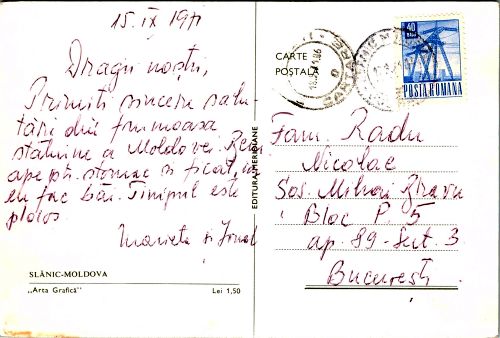 15.IX 971
Dragii noștri,
Primiți sincere salu-
tări din frumoasa
stațiune a Moldovei. Beau
ape pt. stomac și ficat, iar
eu fac băi. Timpul este
ploios.
Marieta și Ionel
SLĂNIC-MOLDOVA
„Arta Grafică"
Lei 1,50
EDITURA MERIDIANE
CARTE
POȘTALĂ
40
BANI
POSTA ROMANA
Fam. Radu
Nicolae
Șos. Mihai Bravu
Bloc P. 5
ap. 89 - Sect. 3
București